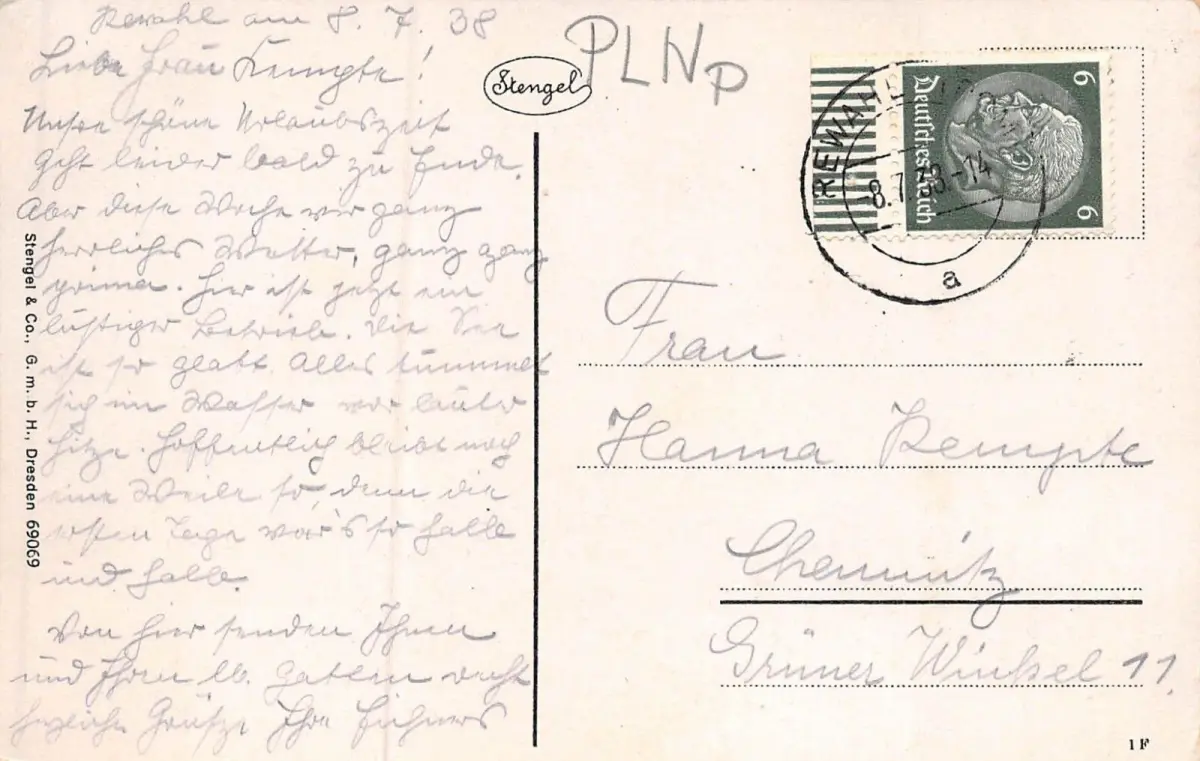 Rewahl am 8. 7. 38
Liebe Frau Kempte!
Unsere schöne Urlaubszeit
geht leider bald zu Ende.
Aber diese Woche war ganz
herrliches Wetter, ganz ganz
prima. Hier ist jetzt ein
lustiger Betrieb. Die See
ist so glatt. Alles tummelt
sich im Wasser vor lauter
Hitze. Hoffentlich bleibt noch
eine Weile so, denn die
ersten Tage war's so
und
Von hier senden Ihnen
und Ihrem lb. Gatten recht
herzliche Grüsze Ihre
Stengel & Co., G. m. b. H., Dresden 69069
Stengel
PLNp
REWAHL
8.7.38-14
a
Deutsches Reich
6
6
Frau
Hanna Kempte
Chemnitz
Grüner Winkel 11.
1 F